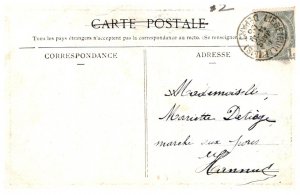 #2
CARTE POSTALE
Tous les pays étrangers n'acceptent pas la correspondance au recto. (Se renseigner
CORRESPONDANCE
ADRESSE
Mademoiselle
Marietta
marché aux porcs
Hannut